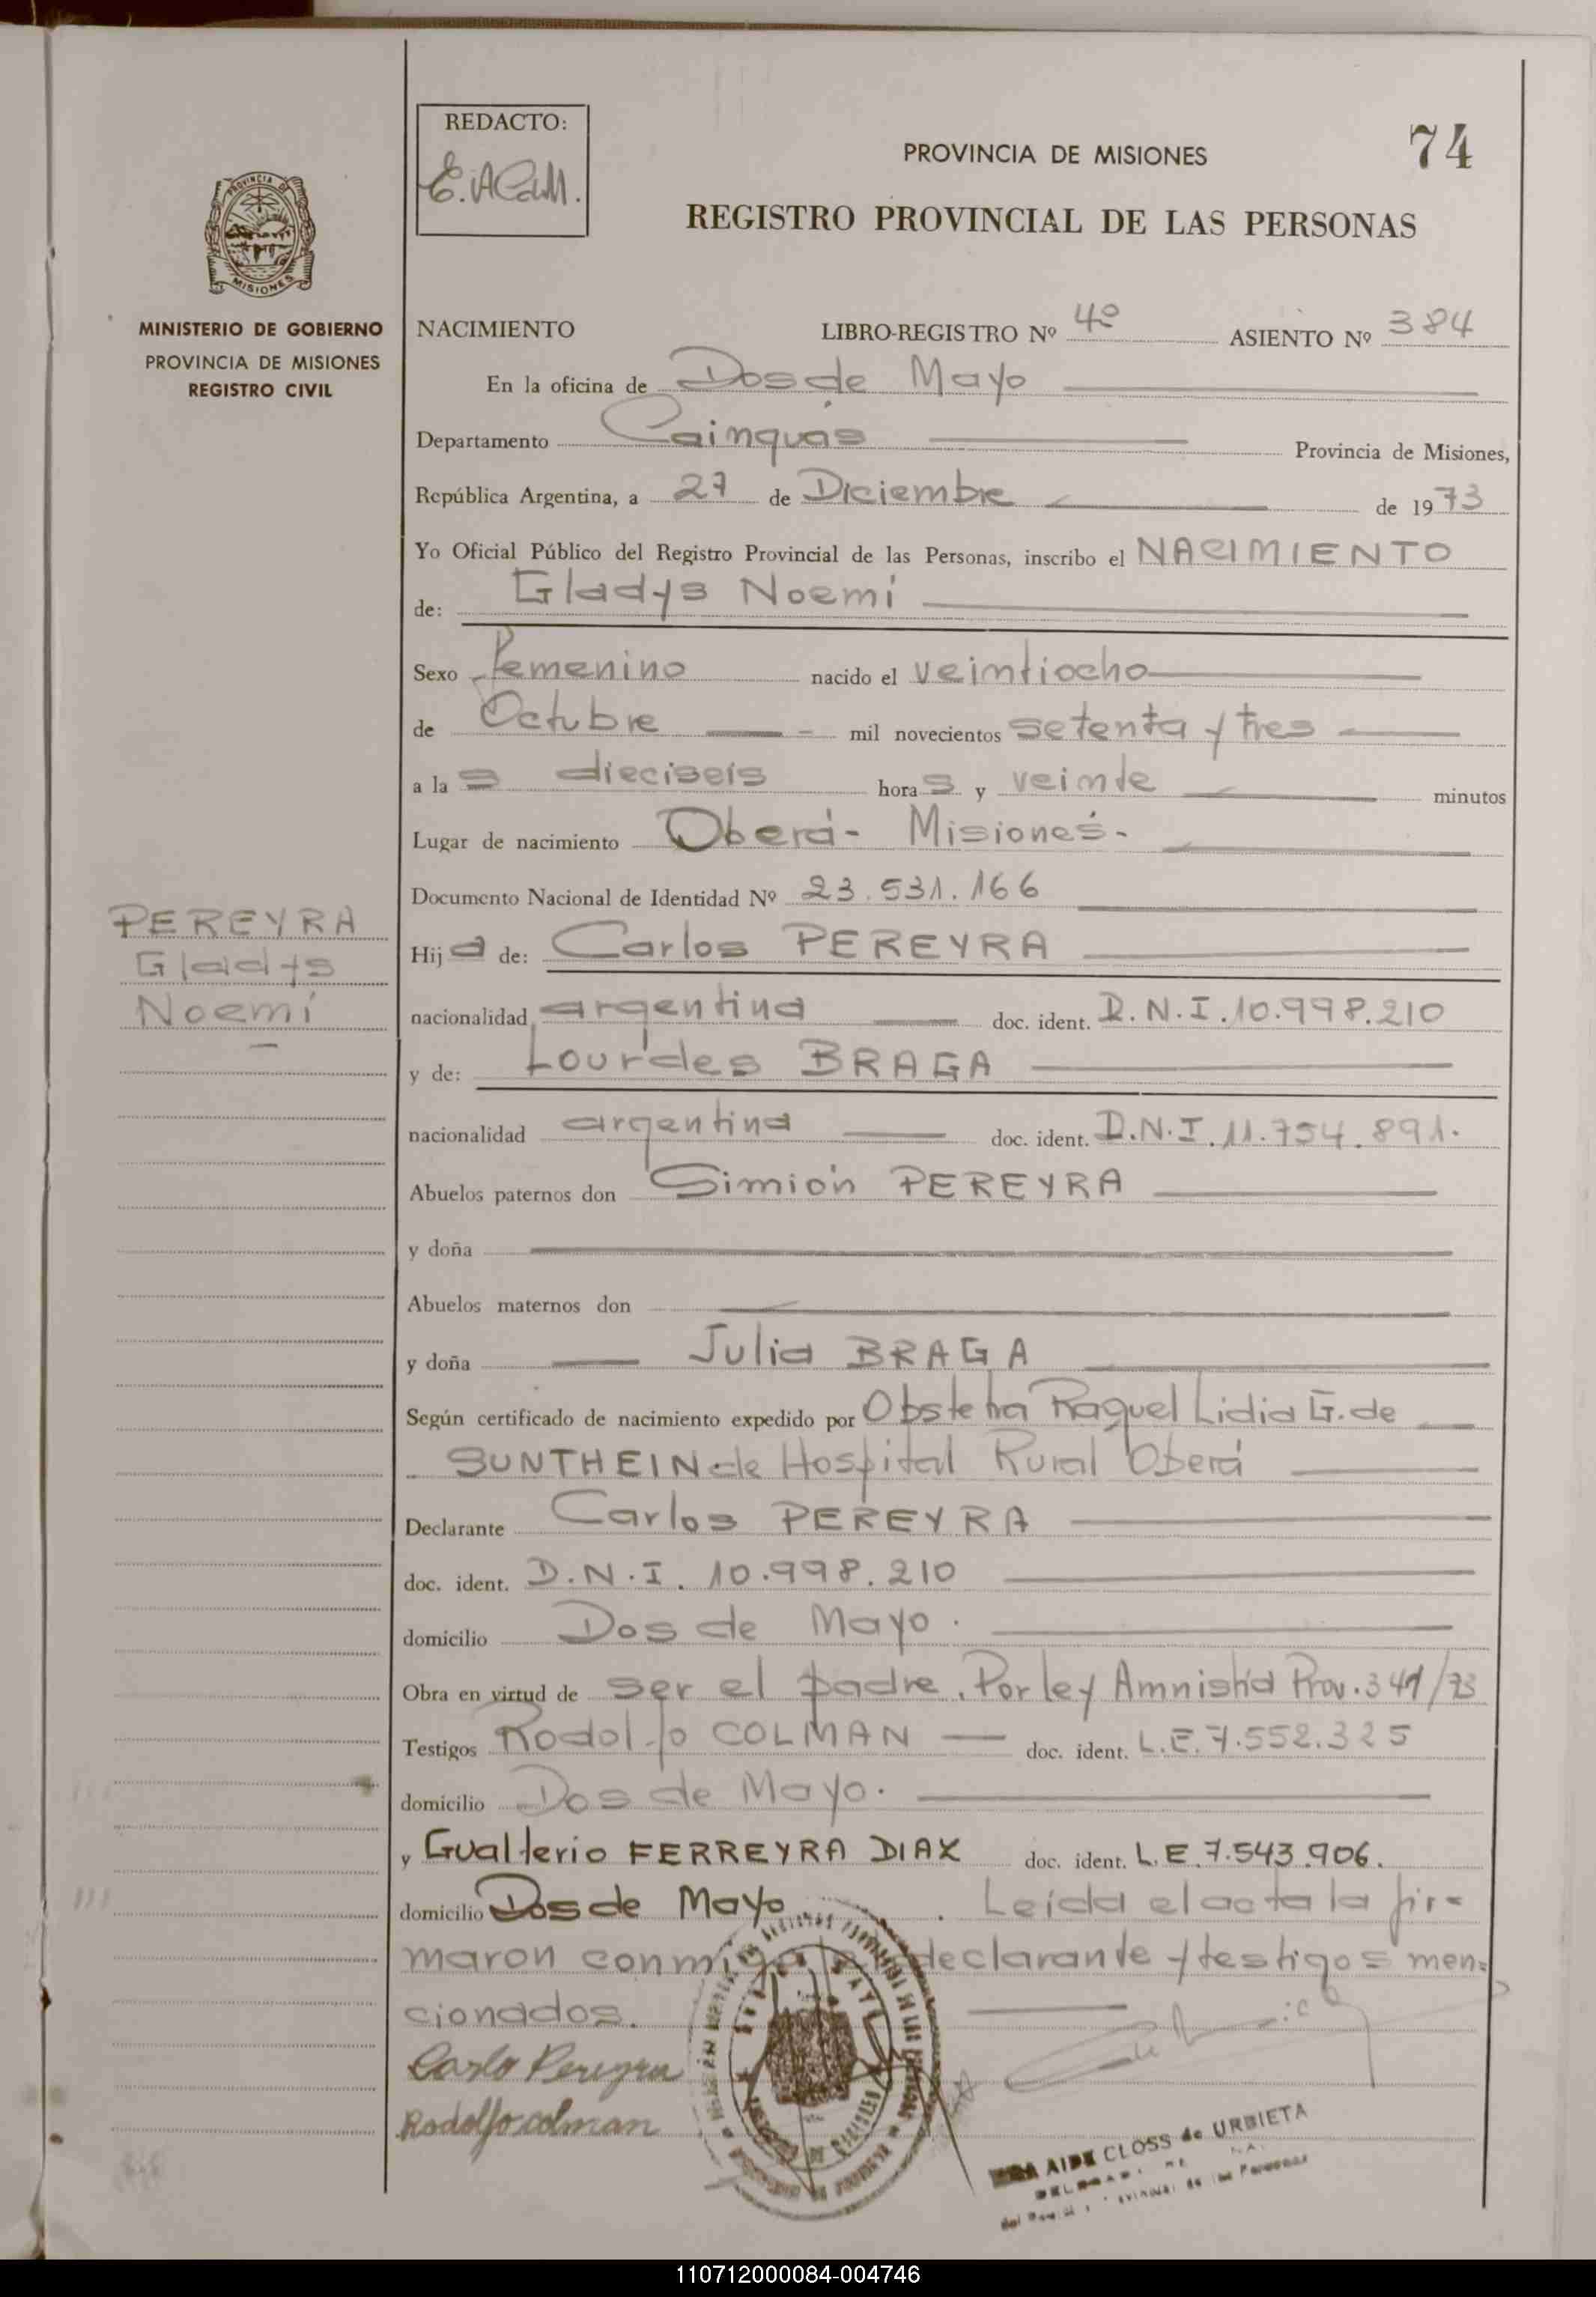 REDACTO:
E. A C d M.
PROVINCIA DE MISIONES
74
REGISTRO PROVINCIAL DE LAS PERSONAS
PROVINCIA DE
MISIONES
MINISTERIO DE GOBIERNO
PROVINCIA DE MISIONES
REGISTRO CIVIL
NACIMIENTO LIBRO-REGISTRO Nº 4º ASIENTO Nº 384
En la oficina de Dos de Mayo
Departamento Cainguás Provincia de Misiones,
República Argentina, a 27 de Diciembre de 1973
Yo Oficial Público del Registro Provincial de las Personas, inscribo el NACIMIENTO
de: Gladys Noemí
Sexo Femenino nacido el veintiocho
de Octubre mil novecientos setenta y tres
a las dieciseis horas y veinte minutos
Lugar de nacimiento Oberá - Misiones -
Documento Nacional de Identidad Nº 23.531.166
PEREYRA
Gladys
Noemí
Hija de: Carlos PEREYRA
nacionalidad argentina doc. ident. D.N.I. 10.998.210
y de: Lourdes BRAGA
nacionalidad argentina doc. ident. D.N.I. 11.754.891.
Abuelos paternos don Simión PEREYRA
y doña
Abuelos maternos don
y doña Julia BRAGA
Según certificado de nacimiento expedido por Obstetra Raquel Lidia G. de
SUNTHEIN de Hospital Rural Oberá
Declarante Carlos PEREYRA
doc. ident. D.N.I. 10.998.210
domicilio Dos de Mayo.
Obra en virtud de ser el padre. Por ley Amnistía Prov. 341/73
Testigos Rodolfo COLMAN doc. ident. L.E. 7.552.325
domicilio Dos de Mayo.
y Gualterio FERREYRA DIAX doc. ident. L.E. 7.543.906.
domicilio Dos de Mayo. Leída el acta la fir=
maron conmigo declarante y testigos men=
cionados.
Carlo Pereyra
Rodolfo colman
AIDE CLOSS de URBIETA
de las Personas
110712000084-004746